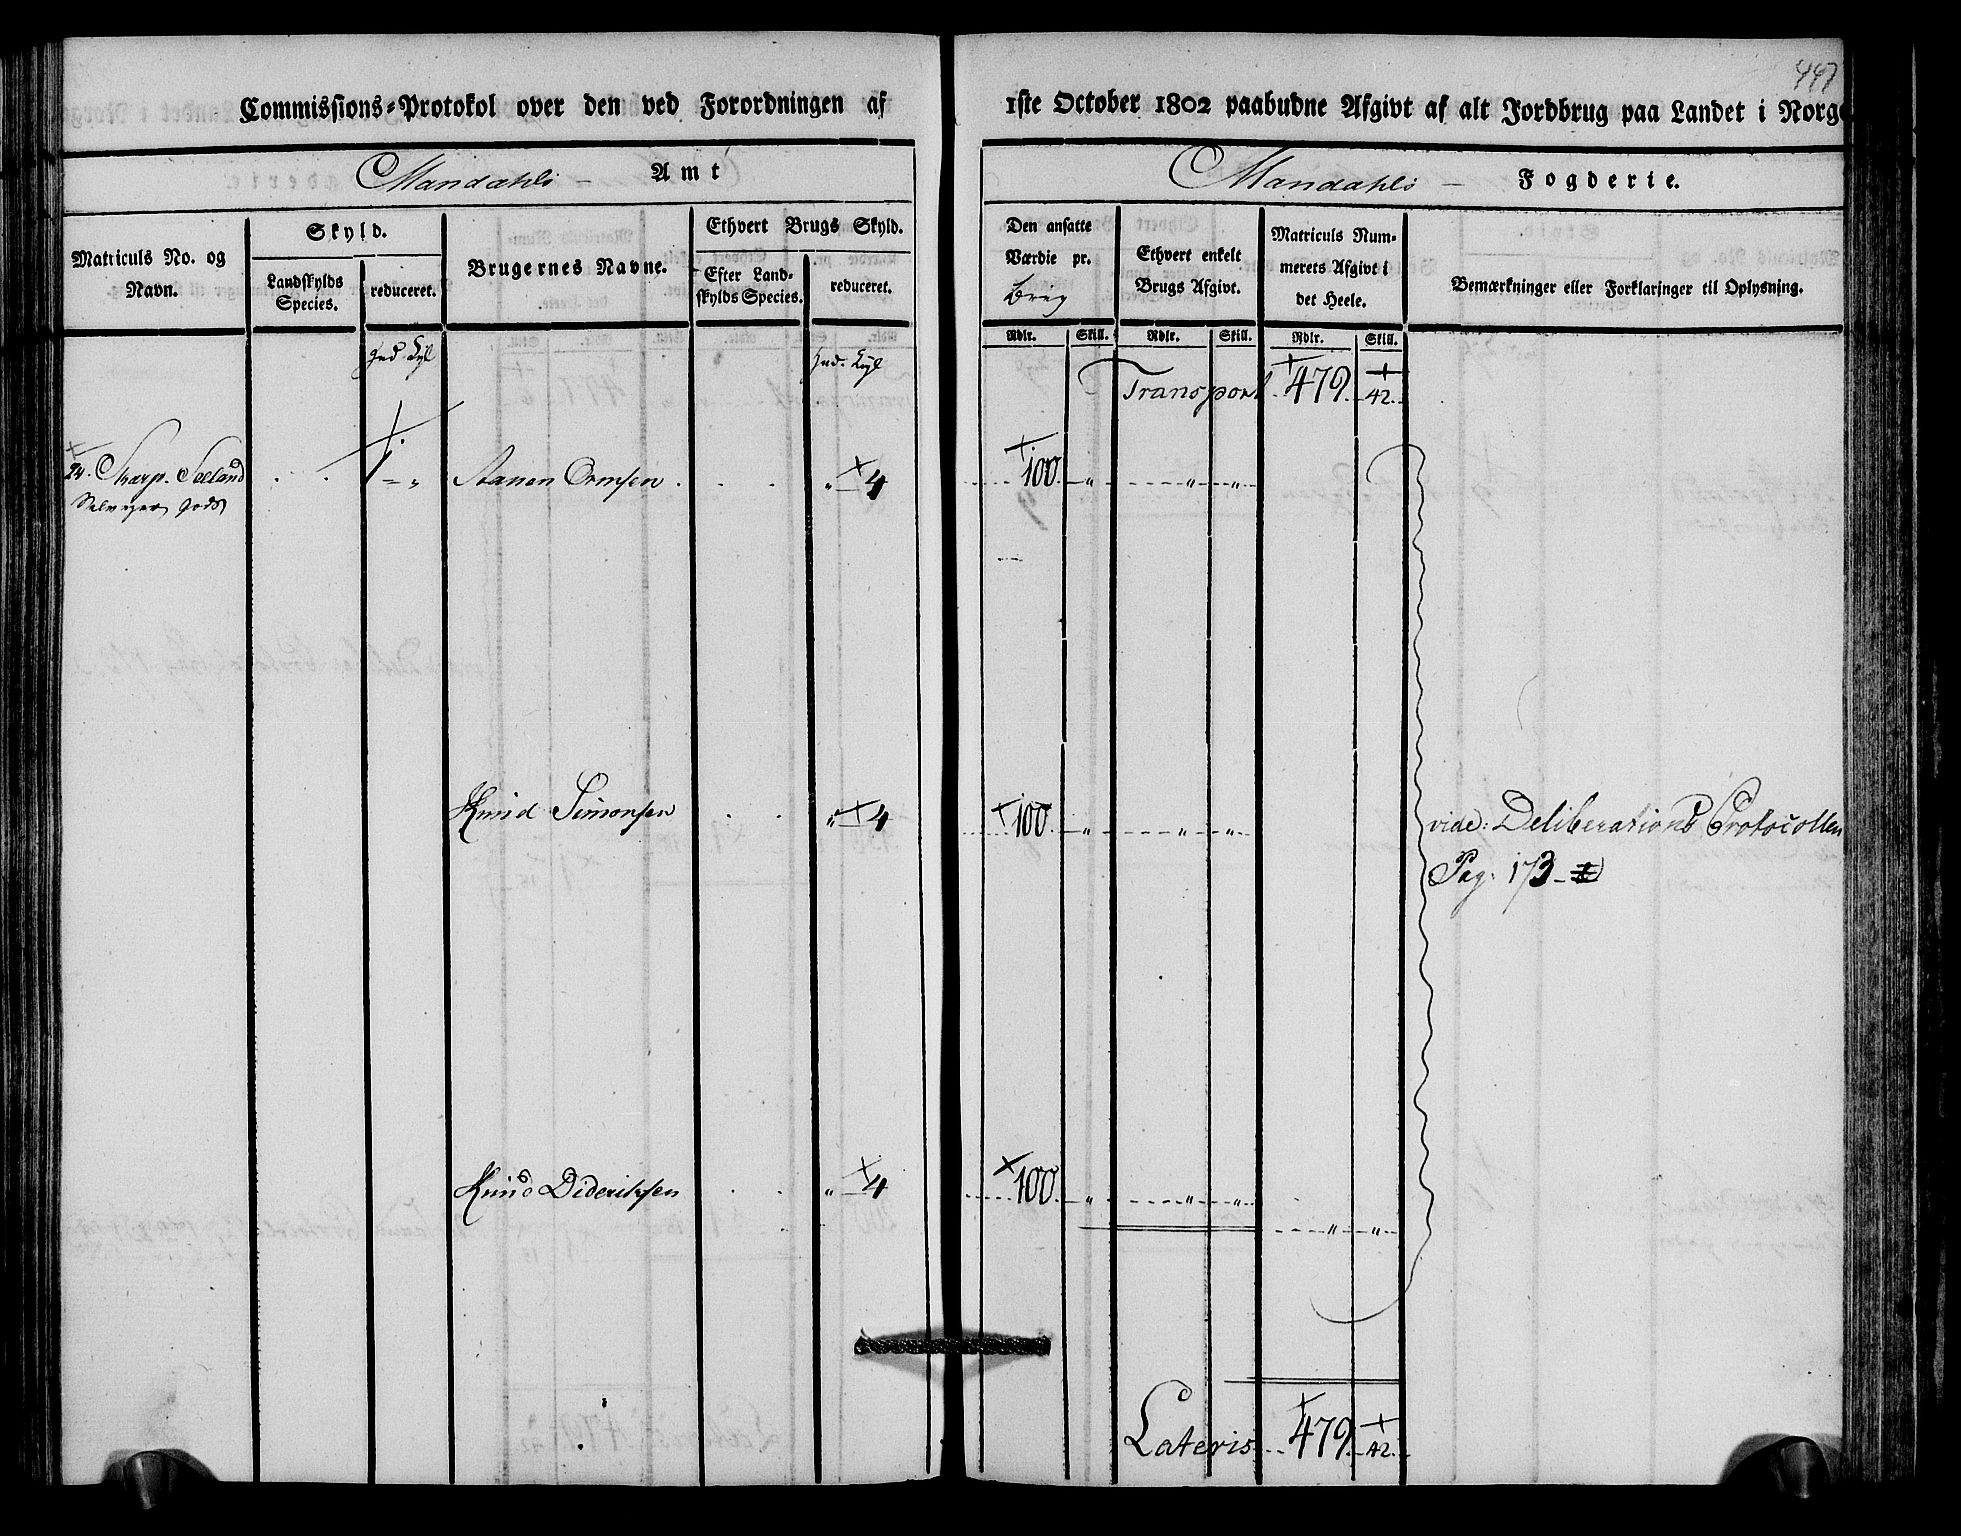 447
Commissions-Protokol over den ved Forordningen af 1ste October 1802 paabudne Afgivt af alt Jordbrug paa Landet i Norge
Mandahls Amt
Mandahls Fogderie.
Matriculs No. og Navn.
Skyld.
Landskylds Species.
reduceret.
Brugernes Navne.
Ethvert Brugs Skyld.
Efter Landskylds Species.
reduceret.
Den ansatte Værdie pr. brug
Ethvert enkelt Brugs Afgivt.
Matriculs Nummerets Afgivt i det Heele.
Bemærkninger eller Forklaringer til Oplysning.
Rdlr. Skill. Rdlr. Skill. Rdlr. Skill.
Transport 479 42
24. Skarp. Seeland 1 - „ Aanen Ormsen „ 4 100 „ „ „
Selveyer Gods
Knud Simonsen „ 4 100 „ „ „ vide: Deliberations Protocollen
Pag: 173
Knud Dideriksen „ 4 100 „ „ „
„ „
Lateris 479 42